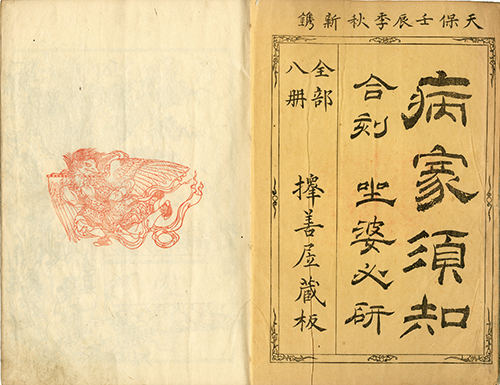 天保壬辰季秋新鐫
病家須知
合刻 坐婆必研
全部
八冊
擇善居藏板